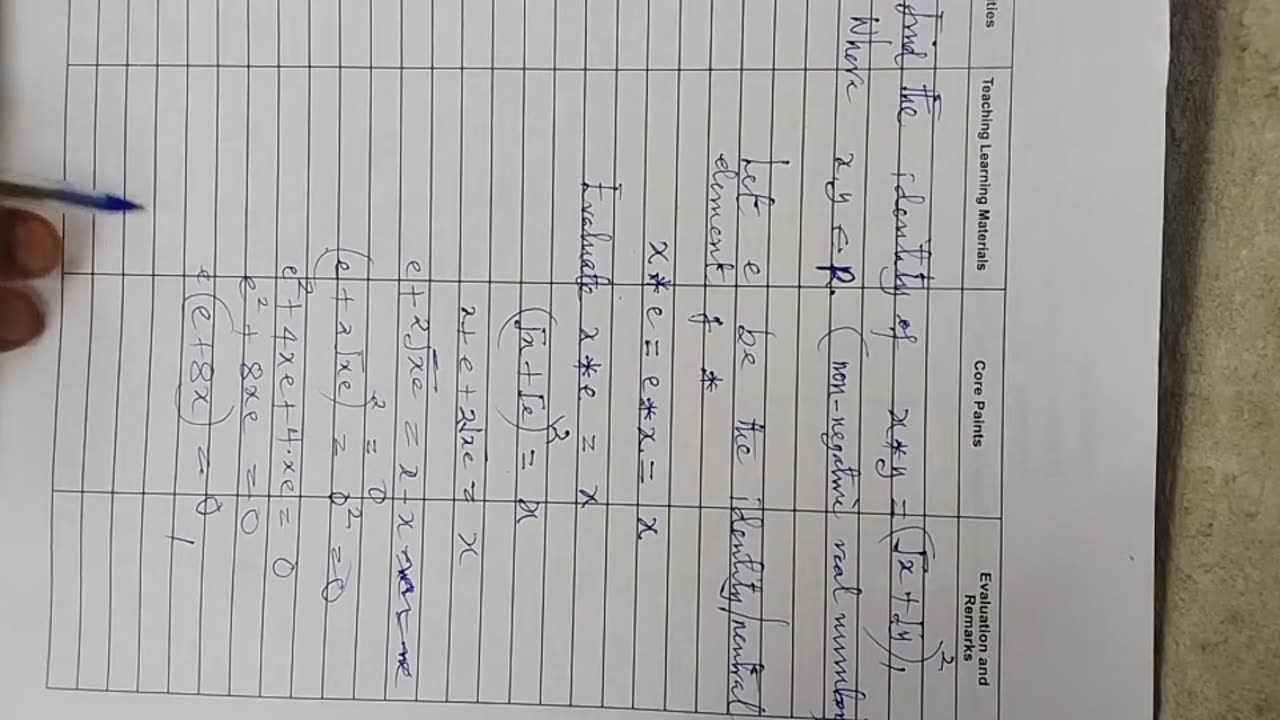 ties Teaching Learning Materials Core Paints Evaluation and Remarks
find the identity of x*y = (√x + √y)²,
Where x,y ∈ R. (non-negative real number
Let e be the identity/neutral
element of *
x*e = e*x = x
Evaluate x*e = x
(√x + √e)² = x
x + e + 2√xe = x
e + 2√xe = x - x
(e + 2√xe)² = 0² = 0
e² + 4xe + 4·xe = 0
e² + 8xe = 0
e(e + 8x) = 0